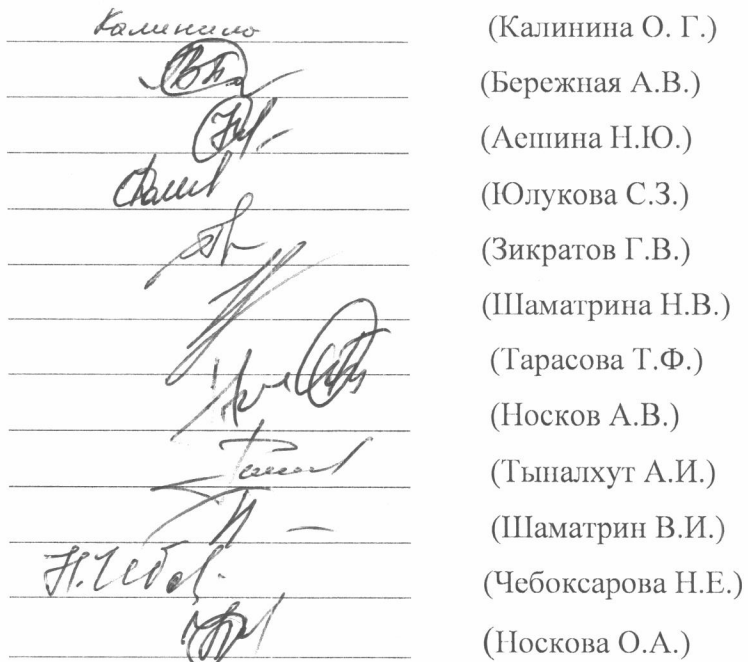 Калинина (Калинина О. Г.)
(Бережная А.В.)
(Аешина Н.Ю.)
(Юлукова С.З.)
(Зикратов Г.В.)
(Шаматрина Н.В.)
(Тарасова Т.Ф.)
(Носков А.В.)
(Тыналхут А.И.)
(Шаматрин В.И.)
(Чебоксарова Н.Е.)
(Носкова О.А.)